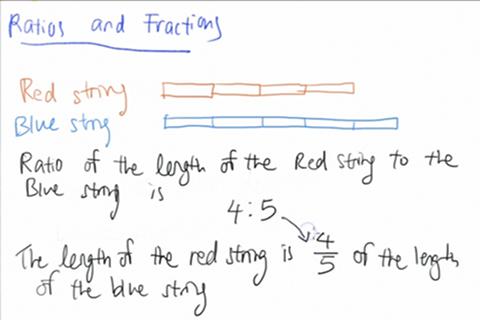 Ratios and Fractions
Red string
Blue string
Ratio of the length of the Red string to the
Blue string is
4:5
The length of the red string is 4/5 of the length
of the blue string